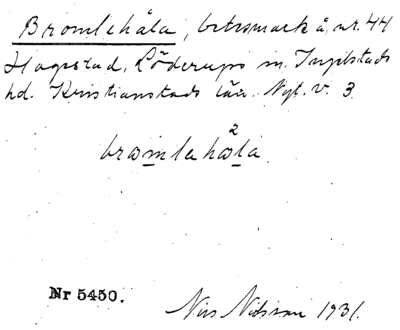 Bromlehåla, betesmark å nr. 44
Hagestad, Löderups sn. Ingelstads
hd. Kristianstads län. Nyt. v. 3
bromlehåla
2
Nr 5450.
Nils Nilsson 1931.